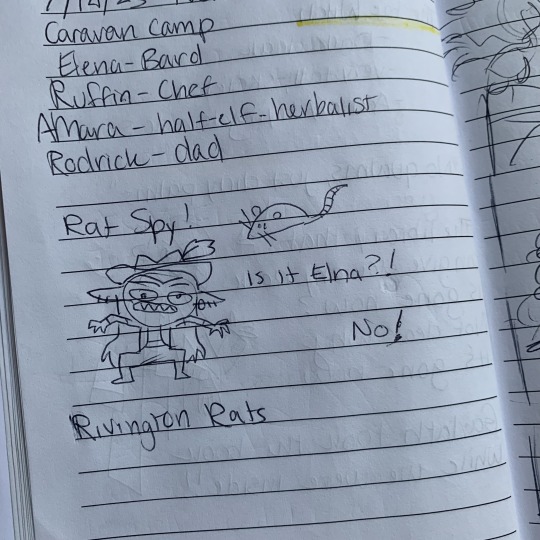 Caravan Camp
Elena- Bard
Ruffin- Chef
Amara - half-elf-herbalist
Rodrick- dad
Rat Spy!
is it Elna?!
No!
Rivington Rats